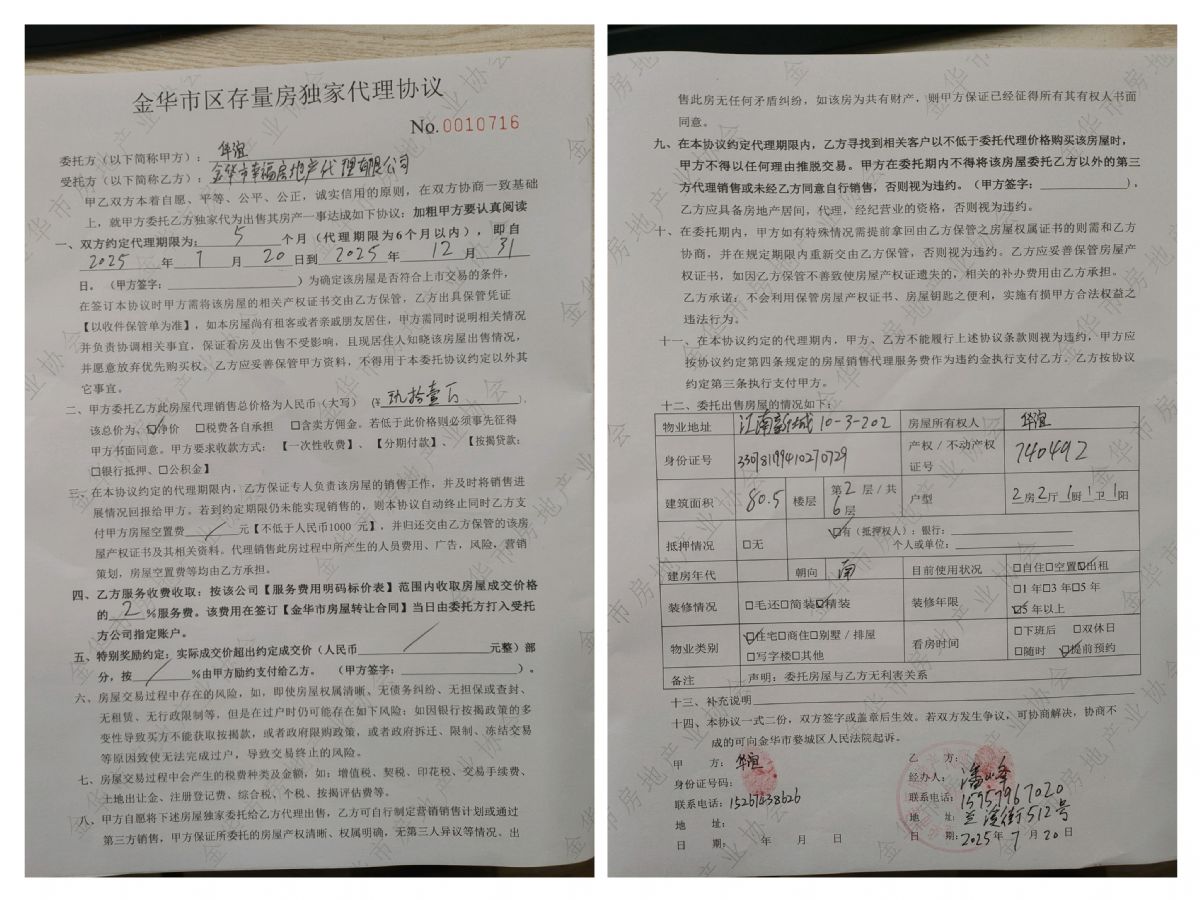 金华市区存量房独家代理协议
No. 0010716
委托方（以下简称甲方）：华谊
受托方（以下简称乙方）：金华市幸福房地产代理有限公司
甲乙双方本着自愿、平等、公平、公正，诚实信用的原则，在双方协商一致基础
上，就甲方委托乙方独家代为出售其房产一事达成如下协议：加粗甲方要认真阅读
一、双方约定代理期限为：5个月（代理期限为6个月以内），即自
2025年7月20日到2025年12月31
日。（甲方签字：）为确定该房屋是否符合上市交易的条件，
在签订本协议时甲方需将该房屋的相关产权证书交由乙方保管，乙方出具保管凭证
【以收件保管单为准】，如本房屋尚有租客或者亲戚朋友居住，甲方需同时说明相关情况
并负责协调相关事宜，保证看房及出售不受影响，且现居住人知晓该房屋出售情况，
并愿意放弃优先购买权。乙方应妥善保管甲方资料，不得用于本委托协议约定以外其
它事宜。
二、甲方委托乙方此房屋代理销售总价格为人民币（大写）（¥玖拾壹万），
该总价为、☑净价 □税费各自承担 □含卖方佣金。若低于此价格则必须事先征得
甲方书面同意。甲方要求收款方式：【一次性收费】、【分期付款】、【按揭贷款：
□银行抵押、□公积金】
三、在本协议约定的代理期限内，乙方保证专人负责该房屋的销售工作，并及时将销售进
展情况回报给甲方。若到约定期限仍未能实现销售的，则本协议自动终止同时乙方支
付甲方房屋空置费/元【不低于人民币1000 元】，并归还交由乙方保管的该房
屋产权证书及其相关资料。代理销售此房过程中所产生的人员费用、广告，风险，营销
策划，房屋空置费等均由乙方承担。
四、乙方服务收费收取：按该公司【服务费用明码标价表】范围内收取房屋成交价格
的2%服务费。该费用在签订【金华市房屋转让合同】当日由委托方打入受托
方公司指定账户。
五、特别奖励约定：实际成交价超出约定成交价（人民币/元整）部
分，按/%由甲方励约支付给乙方。（甲方签字：）。
六、房屋交易过程中存在的风险，如，即使房屋权属清晰、无债务纠纷、无担保或查封、
无租赁、无行政限制等，但是在过户时仍可能存在如下风险：如因银行按揭政策的多
变性导致买方不能获取按揭款，或者政府限购政策，或者政府拆迁、限制、冻结交易
等原因致使无法完成过户，导致交易终止的风险。
七、房屋交易过程中会产生的税费种类及金额，如：增值税、契税、印花税、交易手续费、
土地出让金、注册登记费、综合税、个税、按揭评估费等。
八、甲方自愿将下述房屋独家委托给乙方代理出售，乙方可自行制定营销销售计划或通过
第三方销售，甲方保证所委托的房屋产权清晰、权属明确，无第三人异议等情况、出
售此房无任何矛盾纠纷，如该房为共有财产，则甲方保证已经征得所有其有权人书面
同意。
九、在本协议约定代理期限内，乙方寻找到相关客户以不低于委托代理价格购买该房屋时，
甲方不得以任何理由推脱交易。甲方在委托期内不得将该房屋委托乙方以外的第三
方代理销售或未经乙方同意自行销售，否则视为违约。（甲方签字：），
乙方应具备房地产居间，代理，经纪营业的资格，否则视为违约。
十、在委托期内，甲方如有特殊情况需提前拿回由乙方保管之房屋权属证书的则需和乙方
协商，并在规定期限内重新交由乙方保管，否则视为违约。乙方应妥善保管房屋产
权证书，如因乙方保管不善致使房屋产权证遗失的，相关的补办费用由乙方承担。
乙方承诺：不会利用保管房屋产权证书、房屋钥匙之便利，实施有损甲方合法权益之
违法行为。
十一、在本协议约定的代理期内，甲方、乙方不能履行上述协议条款则视为违约，甲方应
按协议约定第四条规定的房屋销售代理服务费作为违约金执行支付乙方。乙方按协议
约定第三条执行支付甲方。
十二、委托出售房屋的情况如下：
物业地址 江南新城10-3-202 房屋所有权人 华谊
身份证号 330981199410270729 产权/不动产权证号 740492
建筑面积 80.5 楼层 第2层/共6层 户型 2房2厅1厨1卫1阳
抵押情况 □无 ☑有（抵押权人）：银行：
个人或单位：
建房年代 朝向 南 目前使用状况 □自住□空置☑出租
装修情况 □毛还□简装☑精装 装修年限 □1年□3年□5年
☑5年以上
物业类别 ☑住宅□商住□别墅/排屋
□写字楼□其他 看房时间 □下班后 □双休日
□随时 ☑提前预约
备注 声明：委托房屋与乙方无利害关系
十三、补充说明
十四、本协议一式二份，双方签字或盖章后生效。若双方发生争议，可协商解决，协商不
成的可向金华市婺城区人民法院起诉。
甲 方：华谊
身份证号码：
联系电话：15267638626
地 址：
日 期： 年 月 日
乙 方：
经办人：潘峰
联系电话：15957967020
地 址：兰溪街512号
日 期：2025年7月20日